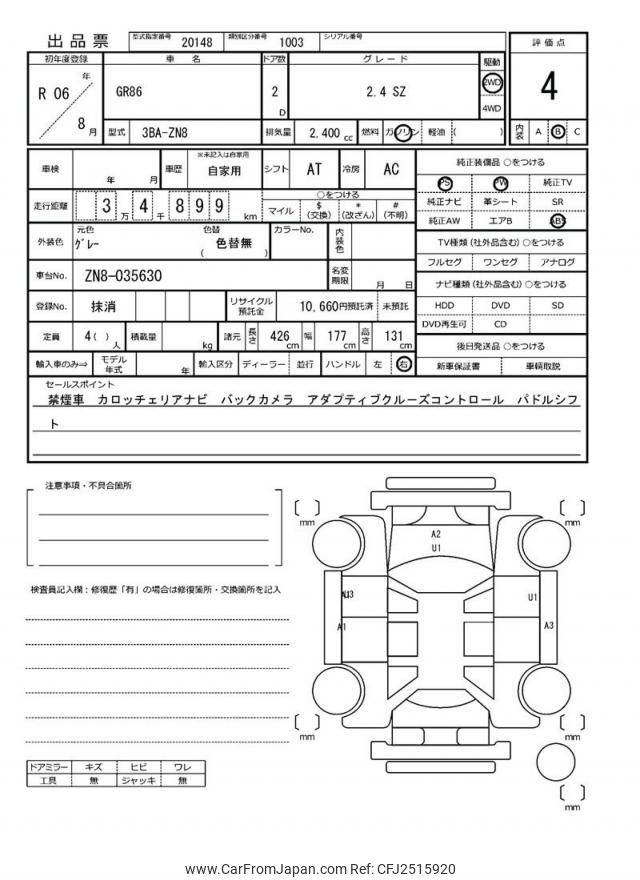 出品票 型式指定番号 20148 類別区分番号 1003 シリアル番号
評価点
4
内装 A B C
初年度登録 車名 ドア数 グレード 駆動
R 06 年 8 月 GR86 2 D 2.4 SZ 2WD 4WD
型式 3BA-ZN8 排気量 2,400 cc 燃料 ガソリン 軽油 ( )
車検 年 月 車歴 ※未記入は自家用 自家用 シフト AT 冷房 AC
走行距離 3 万 4 千 8 9 9 km ○をつける マイル $ (交換) * (改ざん) # (不明)
外装色 元色 グレー 色替 ( 色替無 ) カラーNo. 内装色
車台No. ZN8-035630 名変期限 月 日
登録No. 抹消 リサイクル預託金 10,660円預託済 未預託
定員 4( ) 人 積載量 kg 諸元 長さ 426 cm 幅 177 cm 高さ 131 cm
輸入車のみ⇒ モデル年式 年 輸入区分 ディーラー 並行 ハンドル 左 右
純正装備品 ○をつける
PS PW 純正TV
純正ナビ 革シート SR
純正AW エアB ABS
TV種類 (社外品含む) ○をつける
フルセグ ワンセグ アナログ
ナビ種類 (社外品含む) ○をつける
HDD DVD SD
DVD再生可 CD
後日発送品 ○をつける
新車保証書 車輌取説
セールスポイント
禁煙車 カロッチェリアナビ バックカメラ アダプティブクルーズコントロール パドルシフ
ト
注意事項・不具合箇所
検査員記入欄:修復歴「有」の場合は修復箇所・交換箇所を記入
ドアミラー キズ ヒビ ワレ
工具 無 ジャッキ 無
mm
mm
A2
U1
U1
A1
A3
mm
mm
mm
www.CarFromJapan.com Ref: CFJ2515920